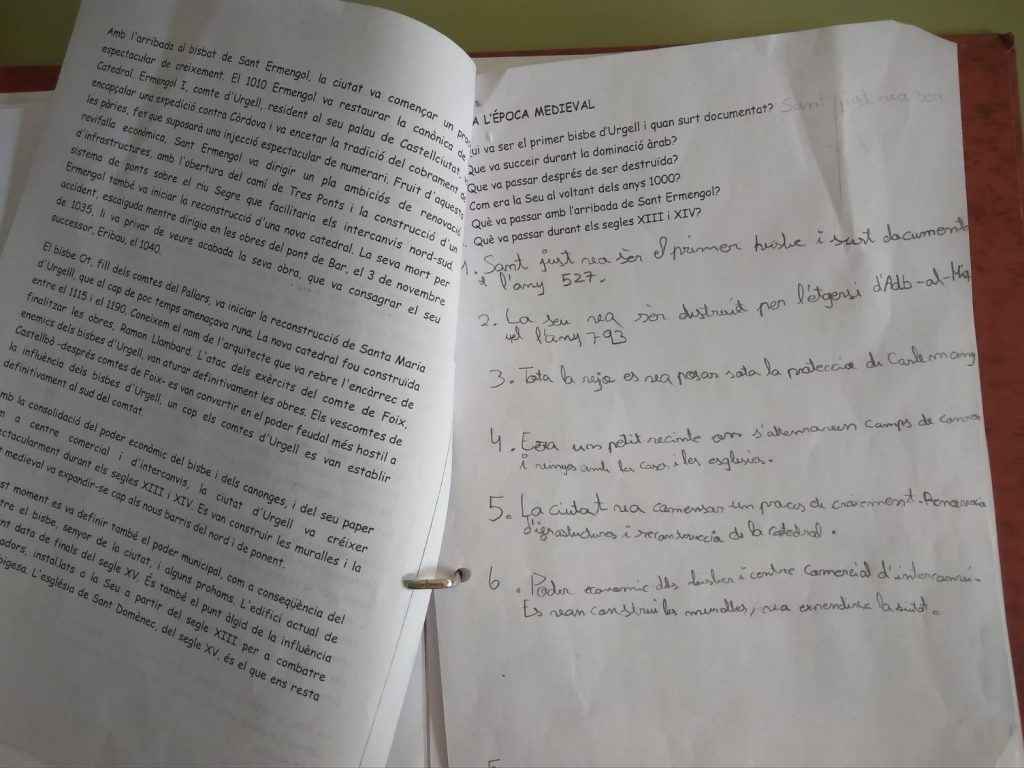 Amb l'arribada al bisbat de Sant Ermengol, la ciutat va començar un
espectacular de creixement. El 1010 Ermengol va restaurar la canònica de
Catedral. Ermengol I, comte d'Urgell, resident al seu palau de Castellciutat,
encapçalar una expedició contra Còrdova i va encetar la tradició del cobrament de
les pàries, fet que suposarà una injecció espectacular de numerari. Fruit d'aquesta
revifalla econòmica, Sant Ermengol va dirigir un pla ambiciós de renovació
d'infrastructures, amb l'obertura del camí de Tres Ponts i la construcció d'un
sistema de ponts sobre el riu Segre que facilitaria els intercanvis nord-sud.
Ermengol també va iniciar la reconstrucció d'una nova catedral. La seva mort per
accident, escaiguda mentre dirigia en les obres del pont de Bar, el 3 de novembre
de 1035, li va privar de veure acabada la seva obra, que va consagrar el seu
successor, Eribau, el 1040.
El bisbe Ot, fill dels comtes del Pallars, va iniciar la reconstrucció de Santa Maria
d'Urgell, que al cap de poc temps amenaçava runa. La nova catedral fou construïda
entre el 1115 i el 1190. Coneixem el nom de l'arquitecte que va rebre l'encàrrec de
finalitzar les obres, Ramon Llambard. L'atac dels exèrcits del comte de Foix,
enemics dels bisbes d'Urgell, van aturar definitivament les obres. Els vescomtes de
Castellbò -després comtes de Foix- es van convertir en el poder feudal més hostil a
la influència dels bisbes d'Urgell, un cop els comtes d'Urgell es van establir
definitivament al sud del comtat.
mb la consolidació del poder econòmic del bisbe i dels canonges, i del seu paper
m a centre comercial i d'intercanvis, la ciutat d'Urgell va créixer
ectacularment durant els segles XIII i XIV. Es van construir les muralles i la
medieval va expandir-se cap als nous barris del nord i de ponent.
st moment es va definir també el poder municipal, com a conseqüència del
tre el bisbe, senyor de la ciutat, i alguns prohoms. L'edifici actual de
nt data de finals del segle XV. És també el punt àlgid de la influència
adors, instal.lats a la Seu a partir del segle XIII per a combatre
bigesa. L'església de Sant Domènec, del segle XV, és el que ens resta
A L'ÉPOCA MEDIEVAL
ui va ser el primer bisbe d'Urgell i quan surt documentat? Sant just va ser
Que va succeir durant la dominació àrab?
Que va passar després de ser destruïda?
Com era la Seu al voltant dels anys 1000?
Què va passar amb l'arribada de Sant Ermengol?
Què va passar durant els segles XIII i XIV?
1. Sant just va sér el primer bisbe i surt document
l'any 527.
2. La seu va sér distruit per l'étgersi d'Adb-al-Mq
yel l'any 793
3. Tota la rejo es va posar sota la proteccio de Carlemany
4. Erra un petit recinte on s'alternaven camps de
i vinyes amb les cases i les esglesies.
5. La ciutat va comensar un proces de creixement.
i recontruccia de la catedral.
6. Poder economic dels bisbes i centre comercial
Es van construi les muralles, va la siutat.